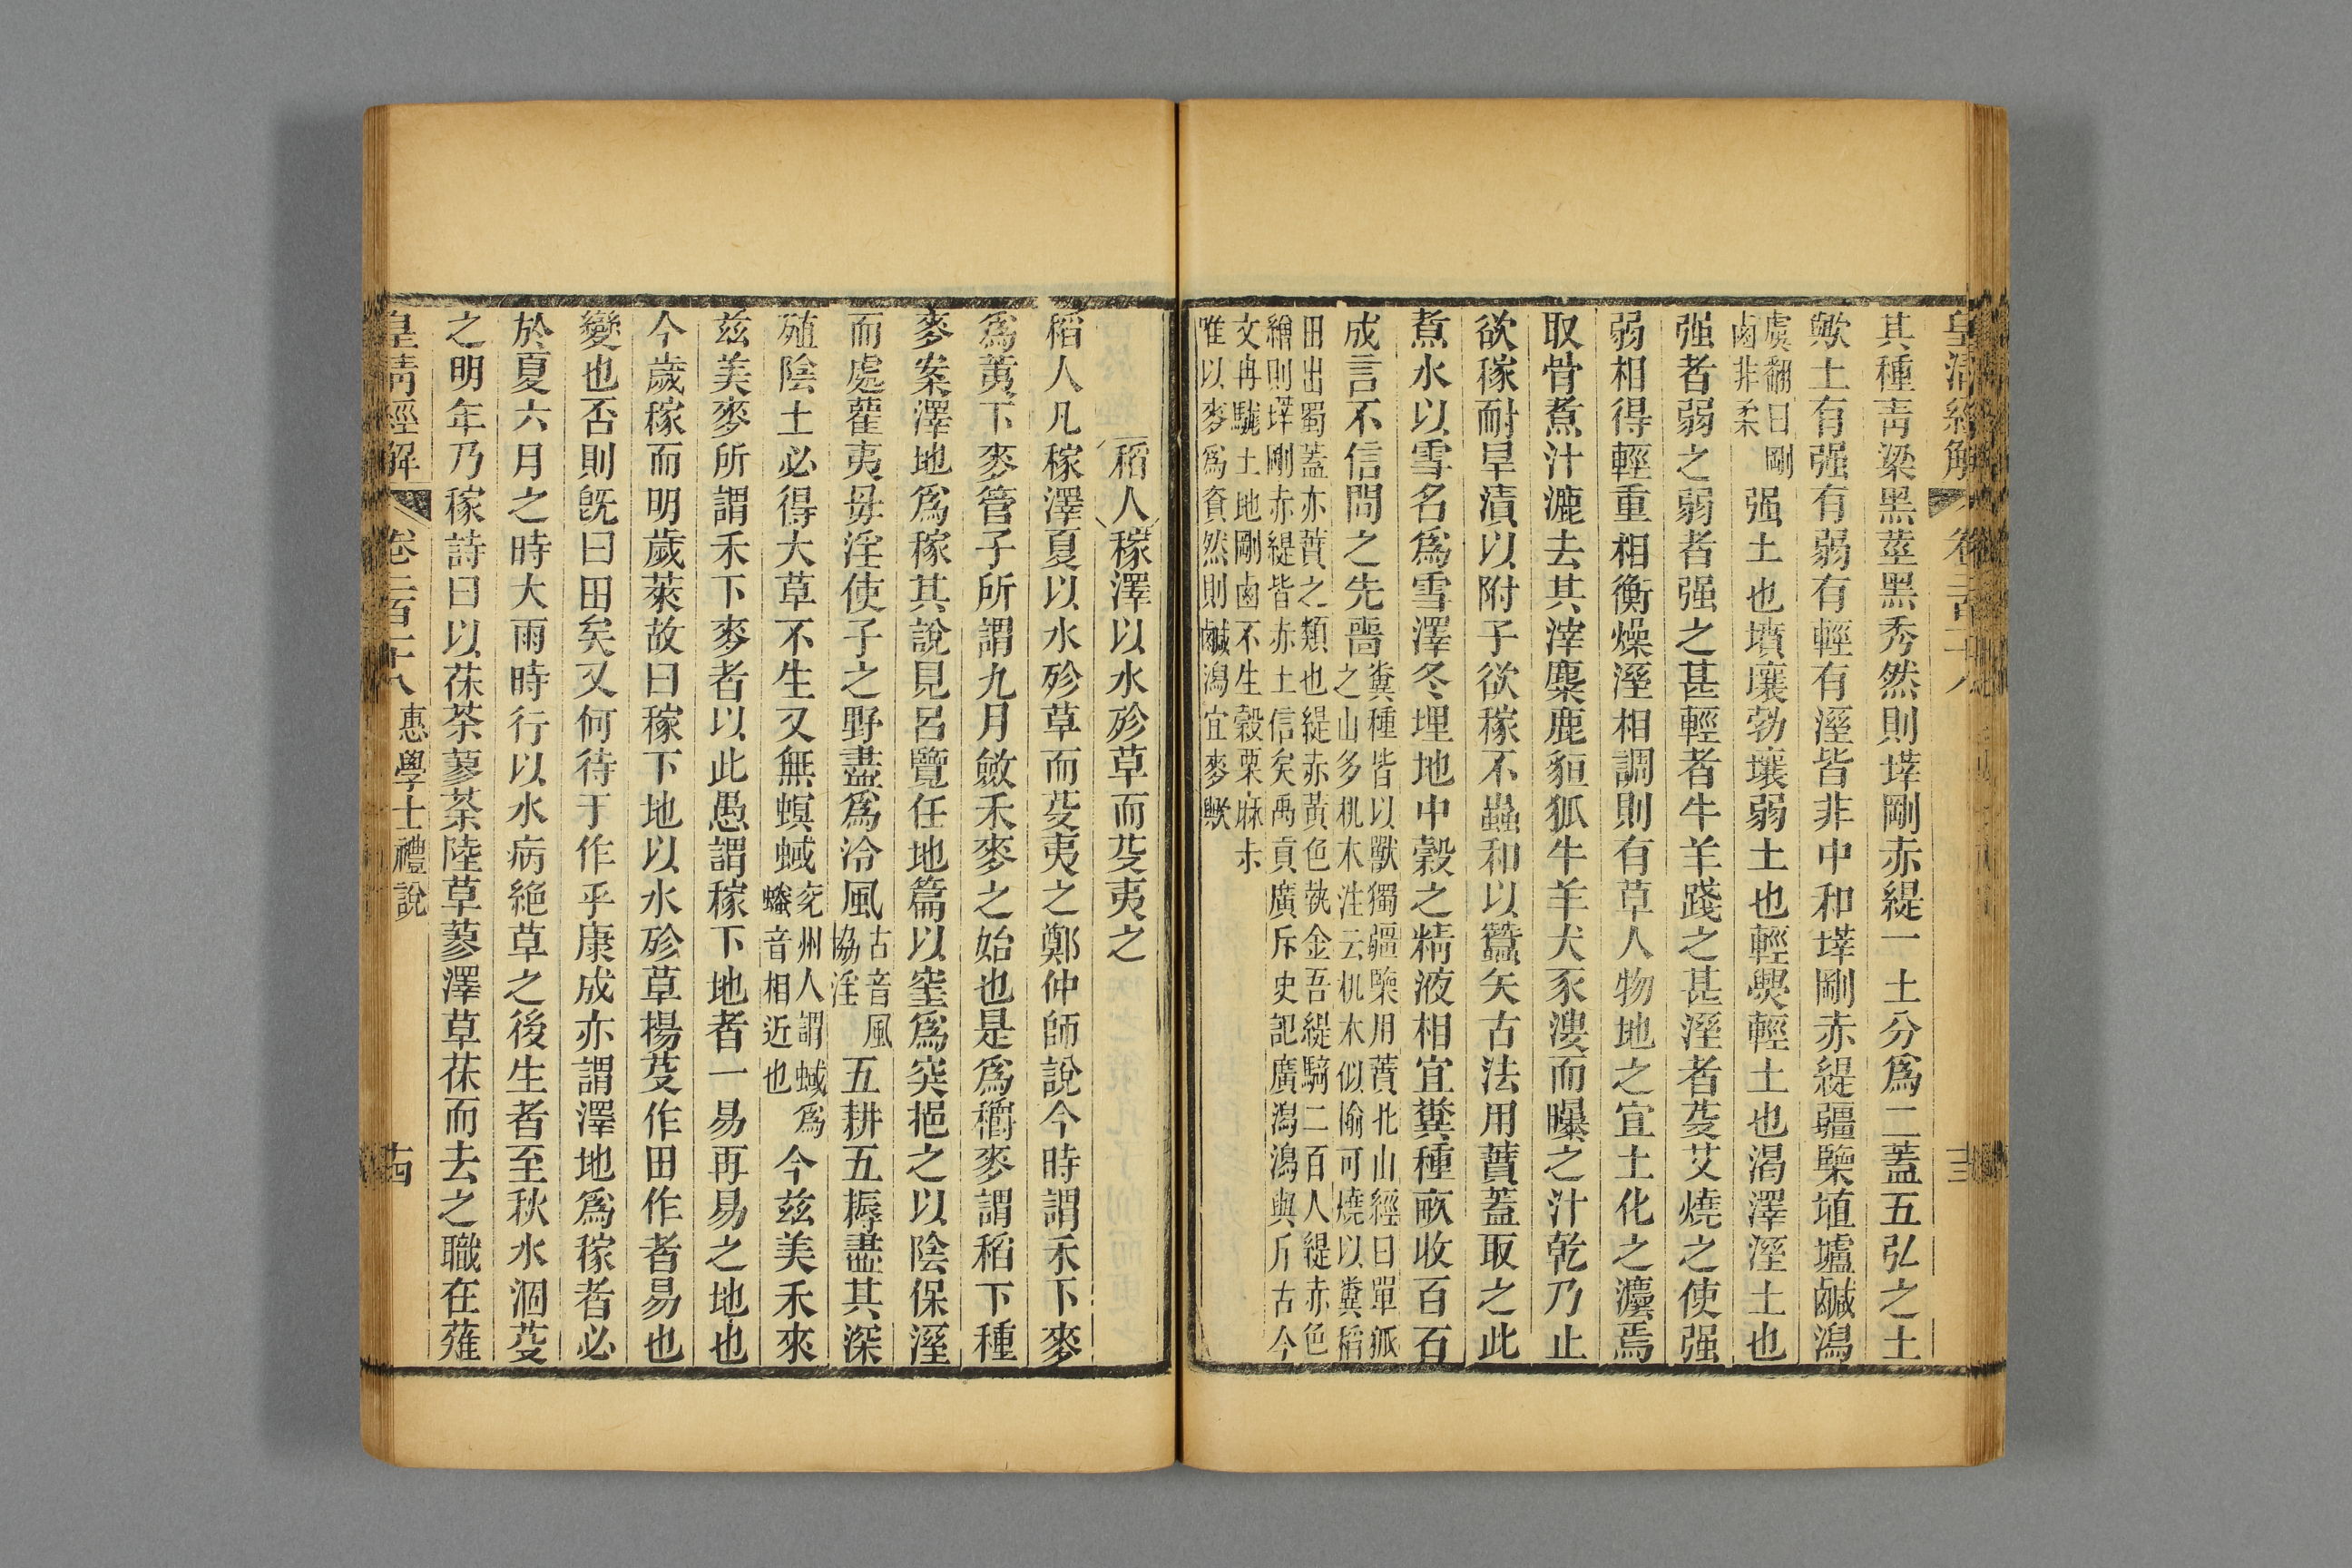 皇清經解 卷二百十八
其種靑梁黑莖黑秀然則墿剛赤緹一土分爲二蓋五弘之土
歟土有强有弱有輕有溼皆非中和墿剛赤緹疆㯺埴壚鹹潟
虞翻曰剛鹵非柔强土也墳壤勃壤弱土也輕㷼輕土也渴澤溼土也
强者弱之弱者强之甚輕者牛羊踐之甚溼者芟艾燒之使强
弱相得輕重相衡燥溼相調則有草人物地之宜土化之灋焉
取骨煮汁漉去其滓麋鹿貆狐牛羊犬豕溲而曝之汁乾乃止
欲稼耐旱漬以附子欲稼不蟲和以蠶矢古法用蕡蓋取之此
煮水以雪名爲雪澤冬埋地中穀之精液相宜糞種畝收百石
成言不信問之先嗇糞種皆以獸獨疆㯺用蕡北山經曰單狐之山多机木注云机木似楡可燒以糞稻
田出蜀蓋亦蕡之類也緹赤黃色執金吾緹騎二百人緹赤色繒則墿剛赤緹皆赤土信矣禹貢廣斥史記廣潟潟與斥古今
文冉駹土地剛鹵不生穀粟麻尗唯以麥爲資然則鹹潟宜麥歟
稻人稼澤以水殄草而芟夷之
稻人凡稼澤夏以水殄草而芟夷之鄭仲師說今時謂禾下麥
爲荑下麥管子所謂九月斂禾麥之始也是爲穱麥謂稻下種
麥案澤地爲稼其說見呂覽任地篇以窐爲突挹之以陰保溼
而處雚夷毋淫使子之野盡爲泠風古音風協淫五耕五耨盡其深
殖陰土必得大草不生又無螟蜮兗州人謂蜮爲螣音相近也今兹美禾來
兹美麥所謂禾下麥者以此愚謂稼下地者一易再易之地也
今歲稼而明歲萊故曰稼下地以水殄草楊芟作田作者易也
變也否則旣曰田矣又何待于作乎康成亦謂澤地爲稼者必
於夏六月之時大雨時行以水病絕草之後生者至秋水涸芟
之明年乃稼詩曰以茠荼蓼荼陸草蓼澤草茠而去之職在薙
皇淸經解 卷二百十八 惠學士禮說 十四